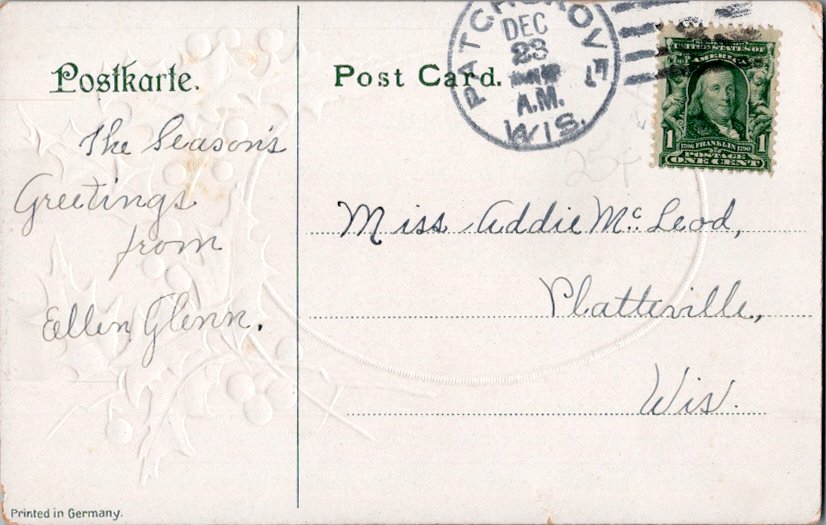 Postkarte.
Post Card.
PATCH GROVE
DEC
23
A.M.
WIS.
UNITED STATES OF
AMERICA
1 1
1706 FRANKLIN 1790
POSTAGE
ONE CENT
25¢
The Season's
Greetings
from
Ellen Glenn.
Miss Addie McLeod,
Platteville,
Wis.
Printed in Germany.